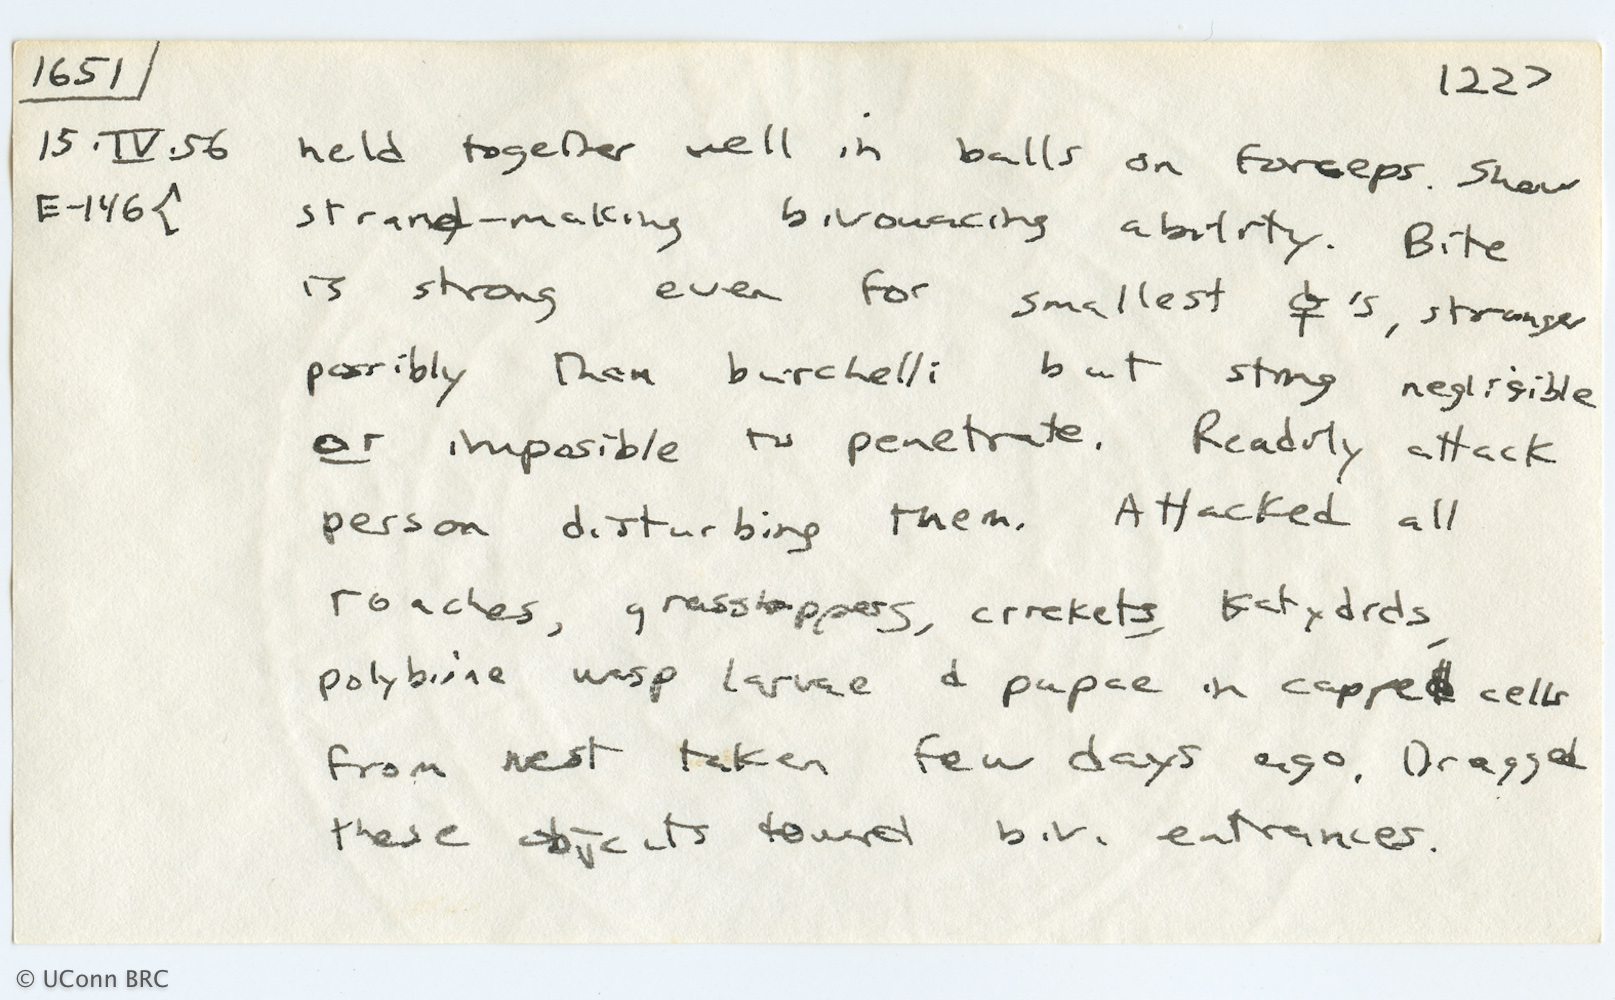 1651 1227
15.IV.56 held together well in balls on forceps. Show
E-146{ strand-making bivouacing ability. Bite
is strong even for smallest ☿'s, stronger
possibly than burchelli but sting negligible
or imposible to penetrate. Readily attack
person disturbing them. Attacked all
roaches, grasshoppers, crickets, katydids,
polybiine wasp larvae & pupae in capped cells
from nest taken few days ago. Dragged
these objects toward biv. entrances.
© UConn BRC